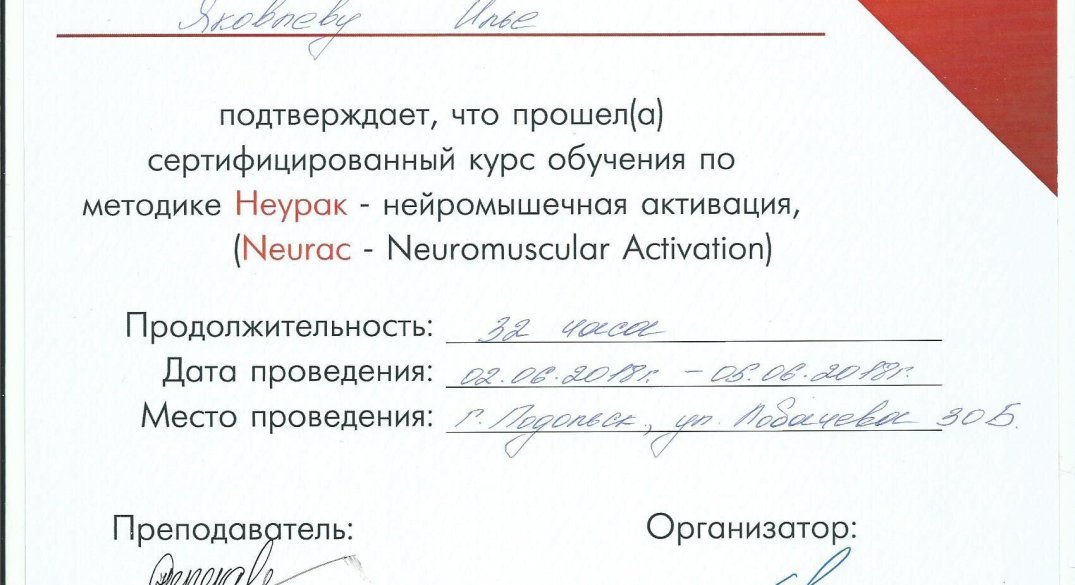 Яковлеву Илье
подтверждает, что прошел(а)
сертифицированный курс обучения по
методике Неурак - нейромышечная активация,
(Neurac - Neuromuscular Activation)
Продолжительность: 32 часа
Дата проведения: 02.06.2018г. - 05.06.2018г.
Место проведения: г. Подольск, ул. Лобачева 30Б.
Преподаватель: Организатор: